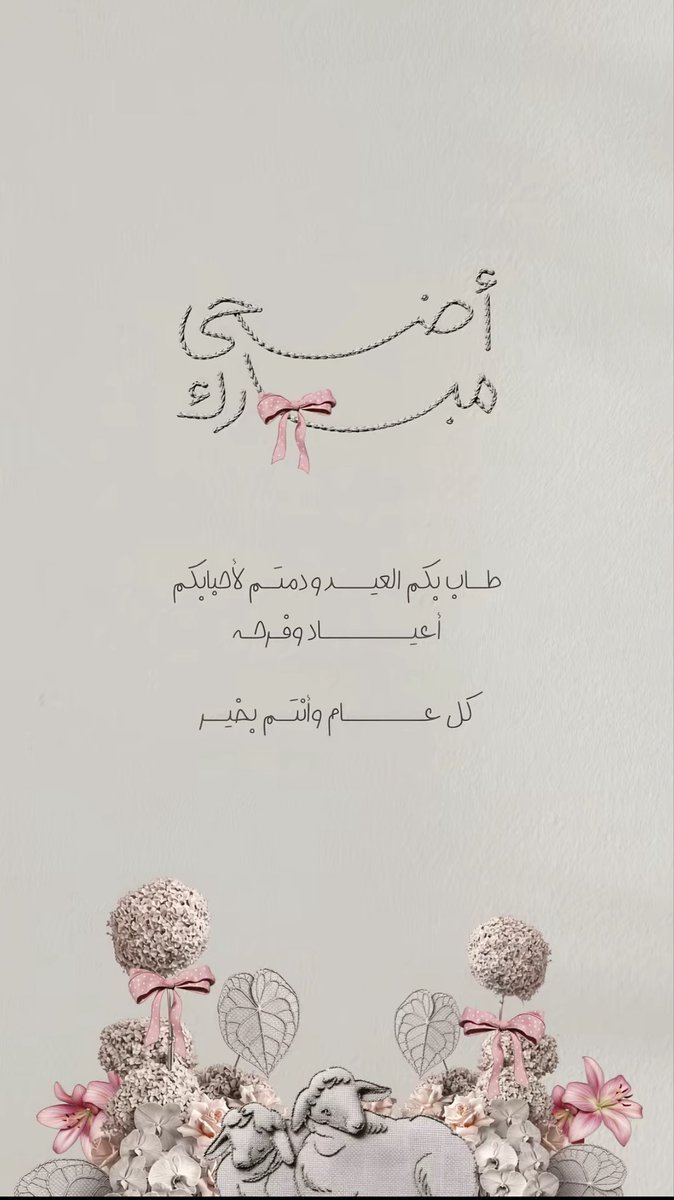 أضحى
مبارك
طاب بكم العيد ودمتم لأحبابكم
أعياد وفرحه
كل عام وأنتم بخير